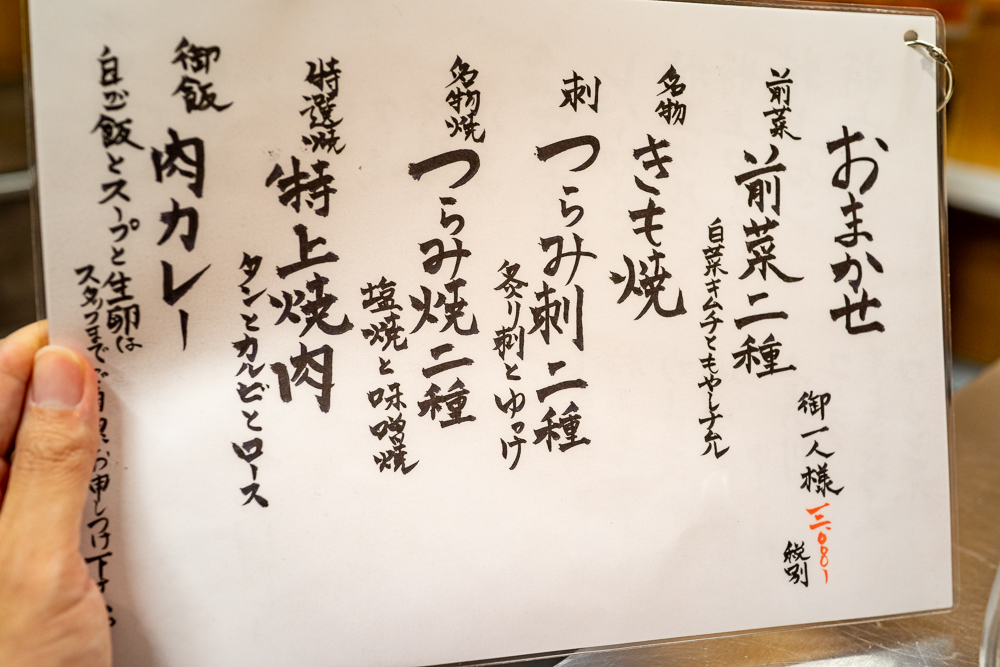 おまかせ
御一人様
税別
前菜
前菜二種
白菜キムチともやしナムル
名物
きも焼
刺
つらみ刺二種
炙り刺とゆっけ
名物焼
つらみ焼二種
塩焼と味噌焼
特選焼
特上焼肉
タンとカルビとロース
御飯
肉カレー
白ご飯とスープと生卵は
スタッフまでご自 お申しつけ下